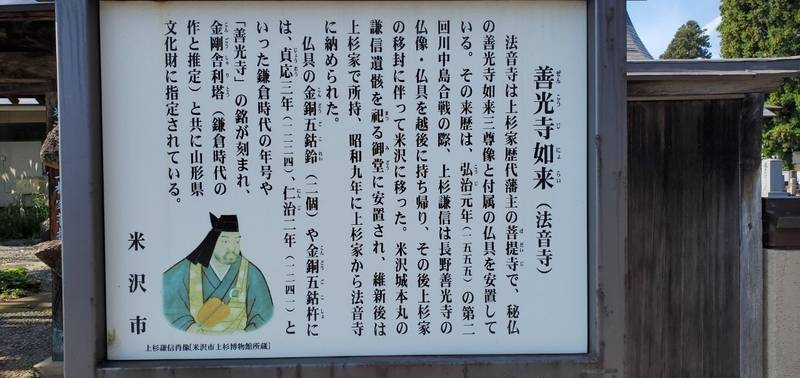 善光寺如来（法音寺）
ぜんこうじにょらい
法音寺は上杉家歴代藩主の菩提寺で、秘仏
ぼだいじ
の善光寺如来三尊像と付属の仏具を安置して
いる。その来歴は、弘治元年（一五五五）の第二
こうじ
回川中島合戦の際、上杉謙信は長野善光寺の
仏像・仏具を越後に持ち帰り、その後上杉家
の移封に伴って米沢に移った。米沢城本丸の
謙信遺骸を祀る御堂に安置され、維新後は
まつ
みどう
上杉家で所持、昭和九年に上杉家から法音寺
に納められた。
仏具の金銅五鈷鈴（二個）や金銅五鈷杵に
こんどうごこれい
こんどうごこしょ
は、貞応三年（一二二四）、仁治二年（一二四一）と
じょうおう
にんじ
いった鎌倉時代の年号や
「善光寺」の銘が刻まれ、
金剛舎利塔（鎌倉時代の
こんごうしゃりとう
作と推定）と共に山形県
文化財に指定されている。
米沢市
上杉謙信肖像［米沢市上杉博物館所蔵］